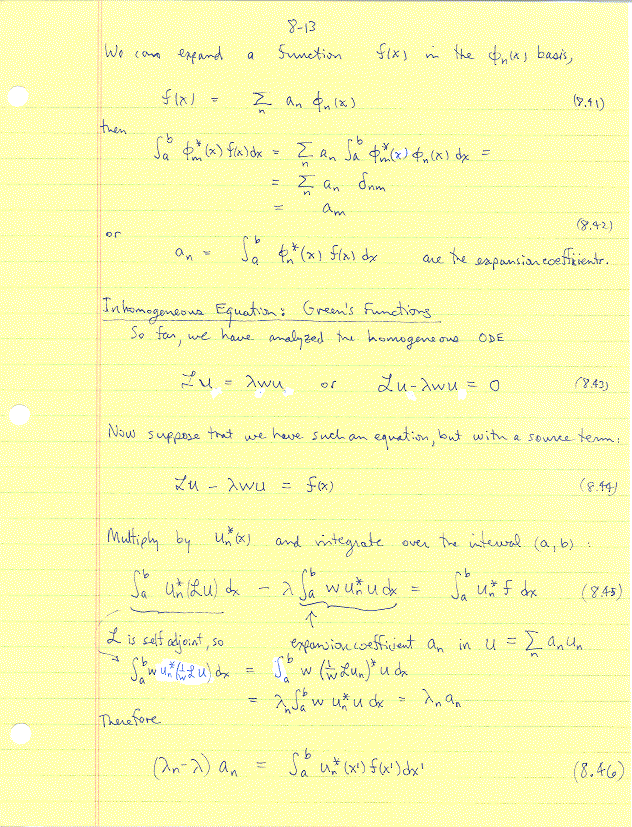 8-13
We can expand a function f(x) in the ϕₙ(x) basis,
f(x) = Σₙ aₙ ϕₙ(x) (8.41)
then
∫ₐᵇ ϕₘ*(x) f(x) dx = Σₙ aₙ ∫ₐᵇ ϕₘ*(x) ϕₙ(x) dx =
= Σₙ aₙ δₙₘ
= aₘ
(8.42)
or
aₙ = ∫ₐᵇ ϕₙ*(x) f(x) dx are the expansion coefficients.
Inhomogeneous Equation: Green's Functions
So far, we have analyzed the homogeneous ODE
ℒu = λwu or ℒu - λwu = 0 (8.43)
Now suppose that we have such an equation, but with a source term:
ℒu - λwu = f(x) (8.44)
Multiply by uₙ*(x) and integrate over the interval (a, b) :
∫ₐᵇ uₙ*(ℒu) dx - λ ∫ₐᵇ w uₙ* u dx = ∫ₐᵇ uₙ* f dx (8.45)
ℒ is self adjoint, so expansion coefficient aₙ in u = Σₙ aₙuₙ
→ ∫ₐᵇ w uₙ*(1/w ℒu) dx = ∫ₐᵇ w (1/w ℒuₙ)* u dx
= λₙ ∫ₐᵇ w uₙ* u dx = λₙ aₙ
Therefore
(λₙ - λ) aₙ = ∫ₐᵇ uₙ*(x') f(x') dx' (8.46)